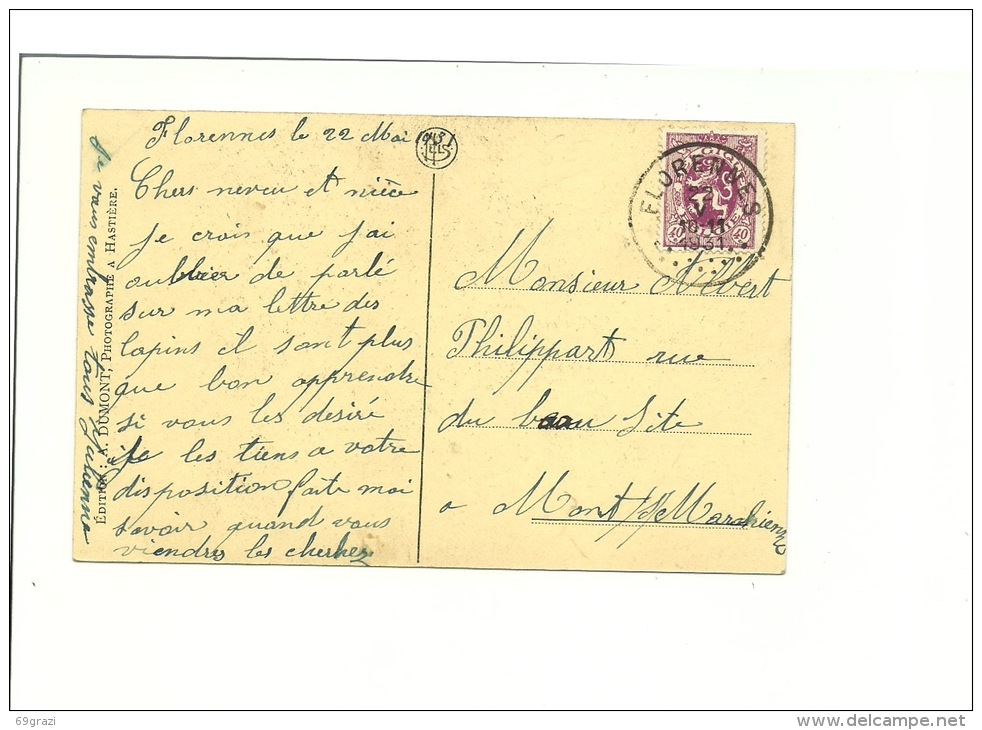 Florennes le 22 Mai 1931
Chers neveu et nièce
je crois que j'ai
oublier de parlé
sur ma lettre des
lapins il sont plus
que bon apprendre
si vous les desiré
je les tiens a votre
disposition faite moi
savoir quand vous
viendres les cherhez
je vous embrasse tous Julienne
ÉDITION : A. DUMONT, PHOTOGRAPHE A HASTIÈRE.
ELS
FLORENNES
22
V
1931
40 40
Monsieur Albert
Philippart rue
du beau Site
a Mont s/ Marchienne
69grazi
www.delcampe.net